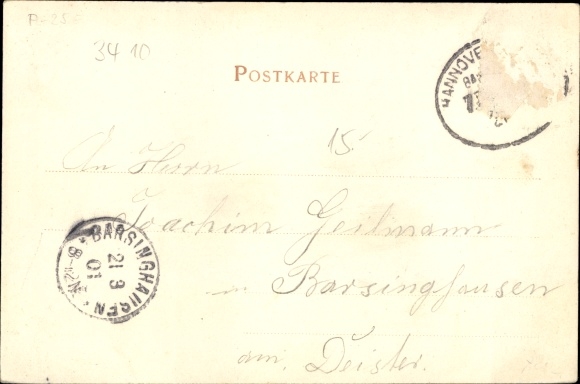 P-25
34 10
POSTKARTE
HANNOVE
15
An Herrn
Joachim Geilmann
in Barsinghausen
am Deister.
* BARSINGHAUSEN *
21 9
01
8-12 N